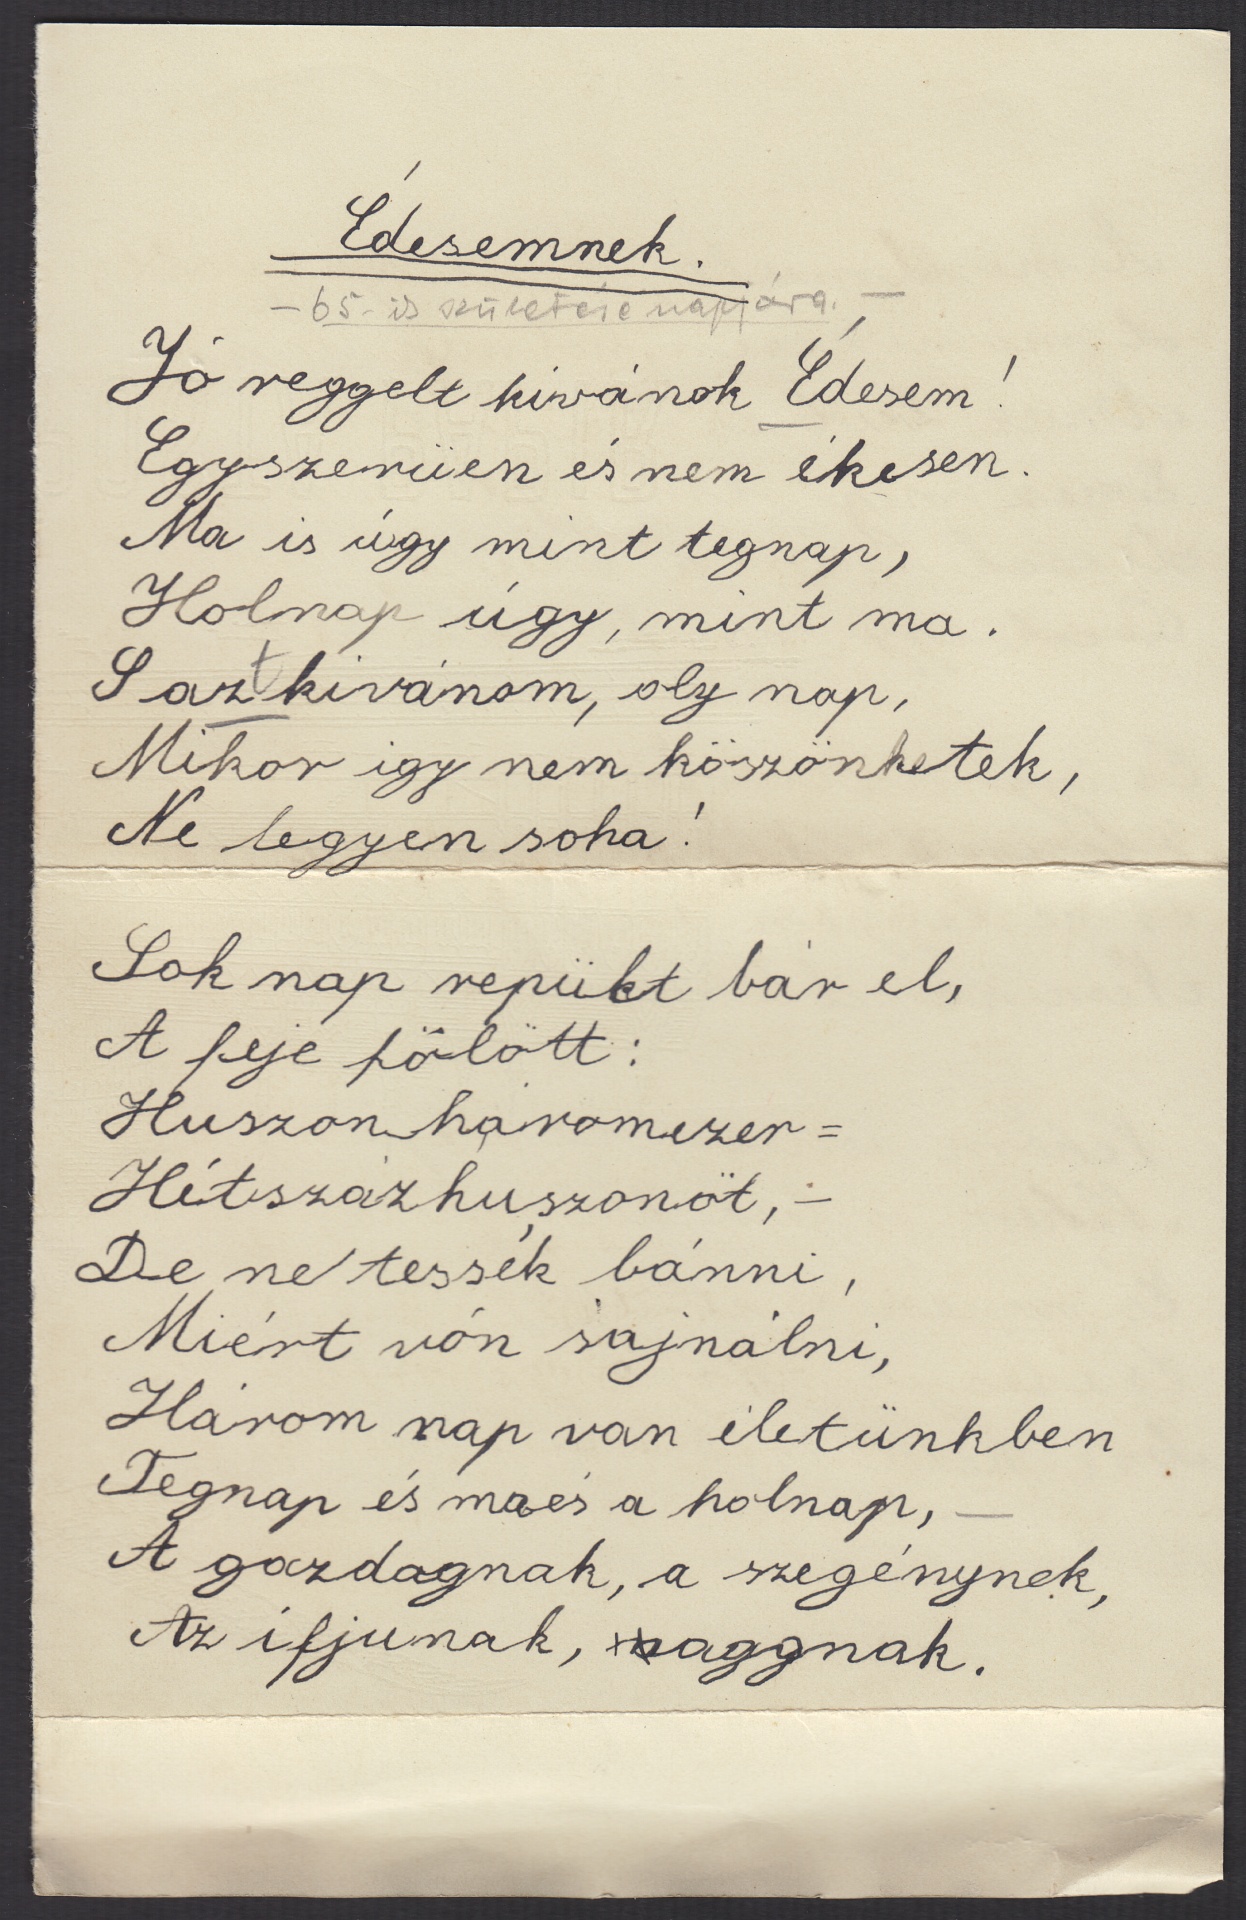 Édesemnek.
– 65-ik születése napjára. –
Jó reggelt kivánok Édesem!
Egyszerüen és nem ékesen.
Ma is úgy mint tegnap,
Holnap úgy, mint ma.
S azt kivánom, oly nap,
Mikor igy nem köszönhetek,
Ne legyen soha!
Sok nap repült bár el,
A feje fölött:
Huszonháromezer=
Hétszázhuszonöt, –
De ne tessék bánni,
Miért vón sajnálni,
Három nap van életünkben
Tegnap és ma és a holnap, –
A gazdagnak, a szegénynek,
Az ifjunak, naggnak.